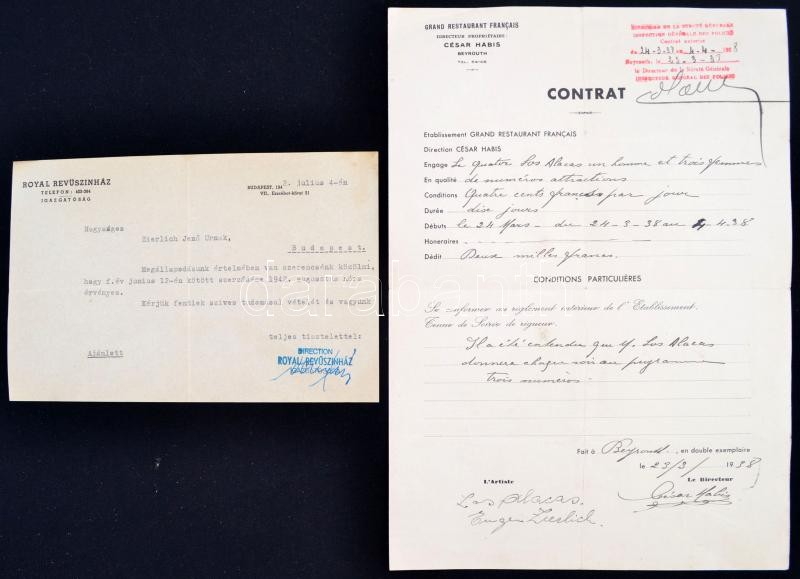 ROYAL REVÜSZINHÁZ
TELEFON: 422-264
IGAZGATÓSÁG
BUDAPEST, 194 2. julius 4-én
VII. Erzsébet-körut 31
Nagyságos
Zierlich Jenő Urnak,
Budapest.
Megállapodásunk értelmében van szerencsénk közölni,
hogy f.év junius 12-én kötött szerződése 1942. augusztus hóra
érvényes.
Kérjük fentiek szives tudomásul vételét és vagyunk
teljes tisztelettel:
Ajánlott
DIRECTION
ROYAL REVÜSZINHÁZ
BUDAPEST
GRAND RESTAURANT FRANÇAIS
DIRECTEUR PROPRIÉTAIRE:
CÉSAR HABIS
BEYROUTH
DIRECTION DE LA SURETÉ GÉNÉRALE
INSPECTION GÉNÉRALE DES POLICES
Contrat autorisé
du 24-3-38 au 4-4- 1938
Beyrouth, le 23-3-38
le Directeur de la Sûreté Générale
INSPECTEUR GÉNÉRAL DES POLICES
CONTRAT
Etablissement GRAND RESTAURANT FRANÇAIS
Direction CÉSAR HABIS
Engage Le quatre Los Alacas un homme et trois femmes
En qualité de numéros attractions
Conditions Quatre cents francs par jour
Durée dix jours
Débuts le 24 Mars - du 24-3-38 au 4.4.38
Honoraires
Dédit Deux milles francs.
CONDITIONS PARTICULIÈRES
Se conformer au règlement intérieur de l'Etablissement.
Tenue de Soirée de rigueur.
Il a été entendu que Los Alacas
donnera chaque soir au programme
trois numéros.
Fait à Beyrouth, en double exemplaire
le 23/3/ 1938
L'Artiste
Le Directeur
Los Alacas.
César Habis
Eugen Zierlich.
darabanth